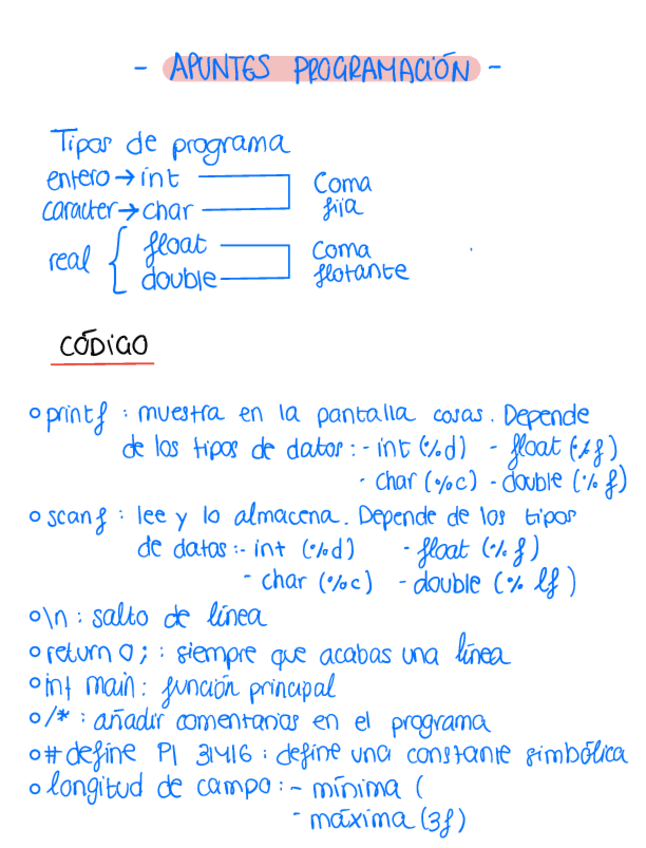 - APUNTES PROGRAMACIÓN -
Tipos de programa
entero → int
caracter → char
Coma
fija
real { float
double
Coma
flotante
CÓDIGO
o printf : muestra en la pantalla cosas. Depende
de los tipos de datos : - int (%d) - float (%f)
- char (%c) - double (% f)
o scanf : lee y lo almacena. Depende de los tipos
de datos :- int (%d) - float (% f)
- char (%c) - double (% lf )
o \n : salto de línea
o return 0 ; : siempre que acabas una línea
o int main : función principal
o /* : añadir comentarios en el programa
o # define PI 31416 : define una constante simbólica
o longitud de campo : - mínima (
- máxima (3f)